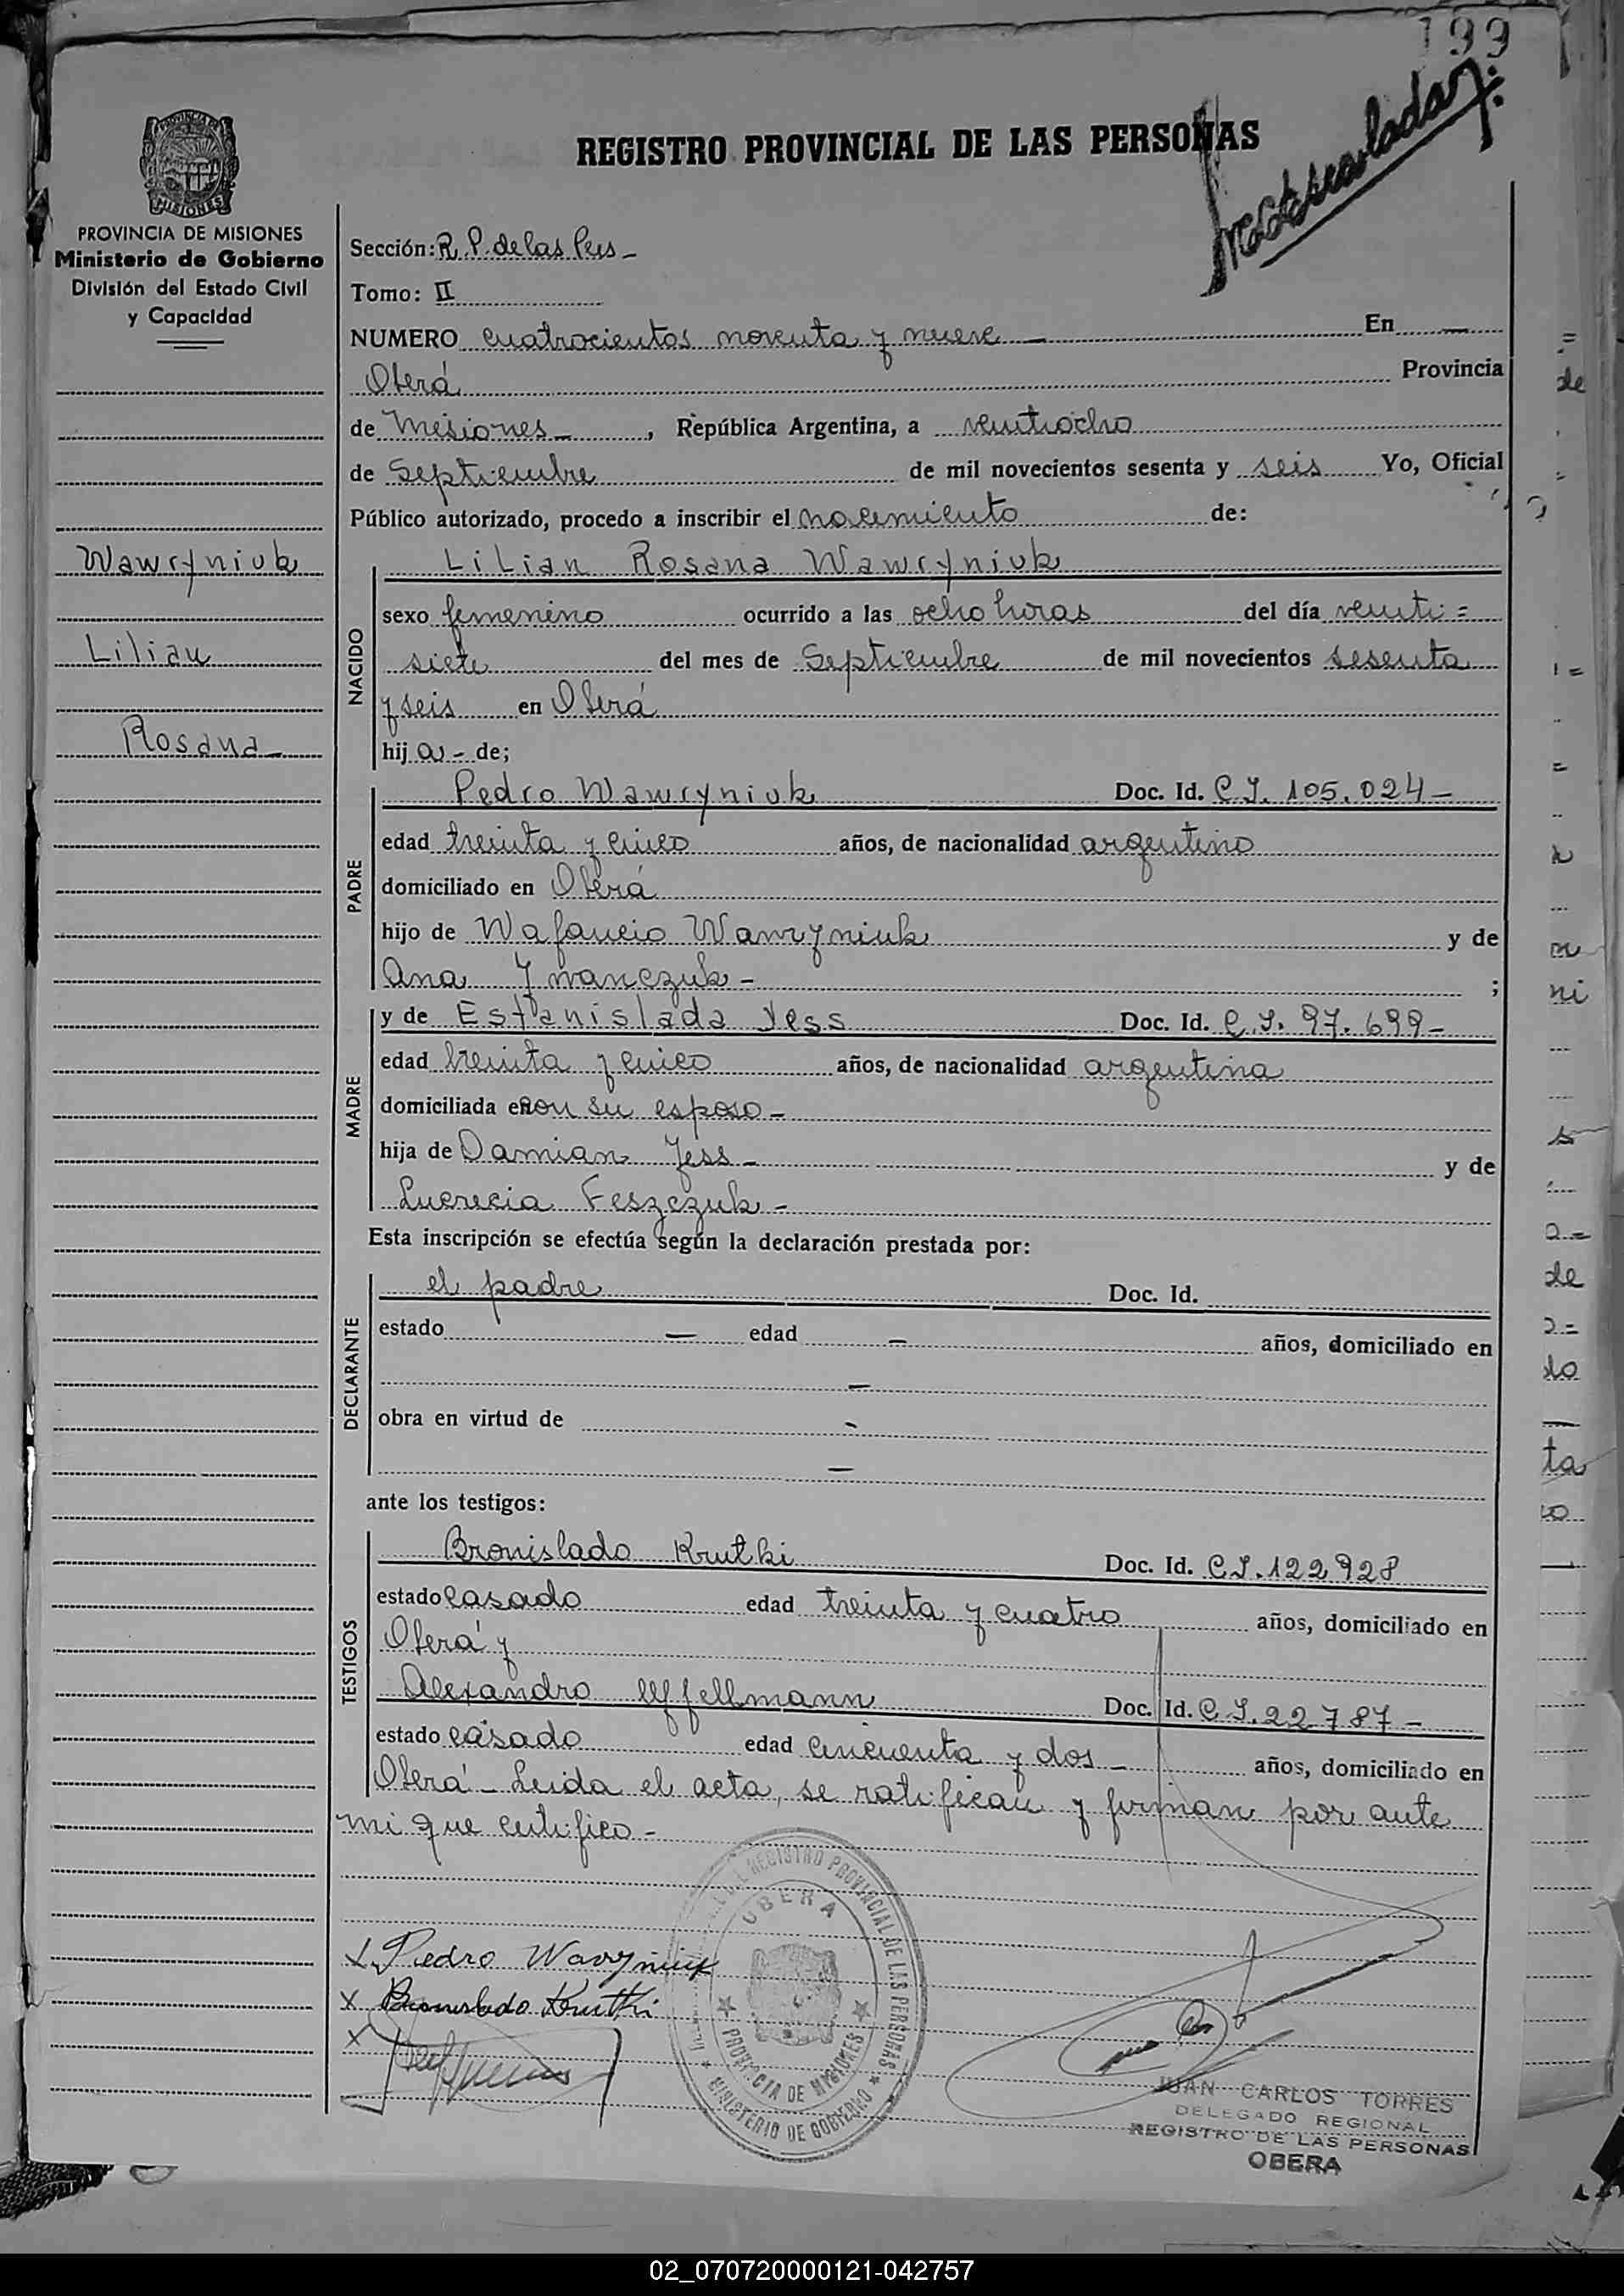 199
Matriculada
REGISTRO PROVINCIAL DE LAS PERSONAS
PROVINCIA DE MISIONES
Ministerio de Gobierno
División del Estado Civil
y Capacidad
Wawryniuk
Lilian
Rosana
Sección: R. P. de las Pers
Tomo: II
NUMERO cuatrocientos noventa y nueve — En —
Oberá Provincia
de Misiones , República Argentina, a veintiocho
de Septiembre de mil novecientos sesenta y seis Yo, Oficial
Público autorizado, procedo a inscribir el nacimiento de:
NACIDO
Lilian Rosana Wawryniuk
sexo femenino ocurrido a las ocho horas del día veinti=
siete del mes de Septiembre de mil novecientos sesenta
y seis en Oberá
hija - de;
PADRE
Pedro Wawryniuk Doc. Id. C.I. 105.024 -
edad treinta y cinco años, de nacionalidad argentino
domiciliado en Oberá
hijo de Wafancio Wawryniuk y de
Ana Iwanczuk - ;
MADRE
y de Estanislada Yess Doc. Id. C.I. 97.699 -
edad treinta y cinco años, de nacionalidad argentina
domiciliada en con su esposo -
hija de Damian Yess - y de
Lucrecia Feszczuk -
Esta inscripción se efectúa según la declaración prestada por:
DECLARANTE
el padre Doc. Id.
estado — edad — años, domiciliado en
—
obra en virtud de -
—
ante los testigos:
TESTIGOS
Bronislado Krutki Doc. Id. C.I. 122928
estado casado edad treinta y cuatro años, domiciliado en
Oberá y
Alexandro Uffellmann Doc. Id. C.I. 22787 -
estado casado edad cincuenta y dos - años, domiciliado en
Oberá - Leída el acta, se ratifican y firman por ante
mi que certifico -
x Pedro Wavryniuk
x Bronislado Krutki
x
REGISTRO PROVINCIAL DE LAS PERSONAS
OBERA
PROVINCIA DE MISIONES
MINISTERIO DE GOBIERNO
JUAN CARLOS TORRES
DELEGADO REGIONAL
REGISTRO DE LAS PERSONAS
OBERA
02_070720000121-042757